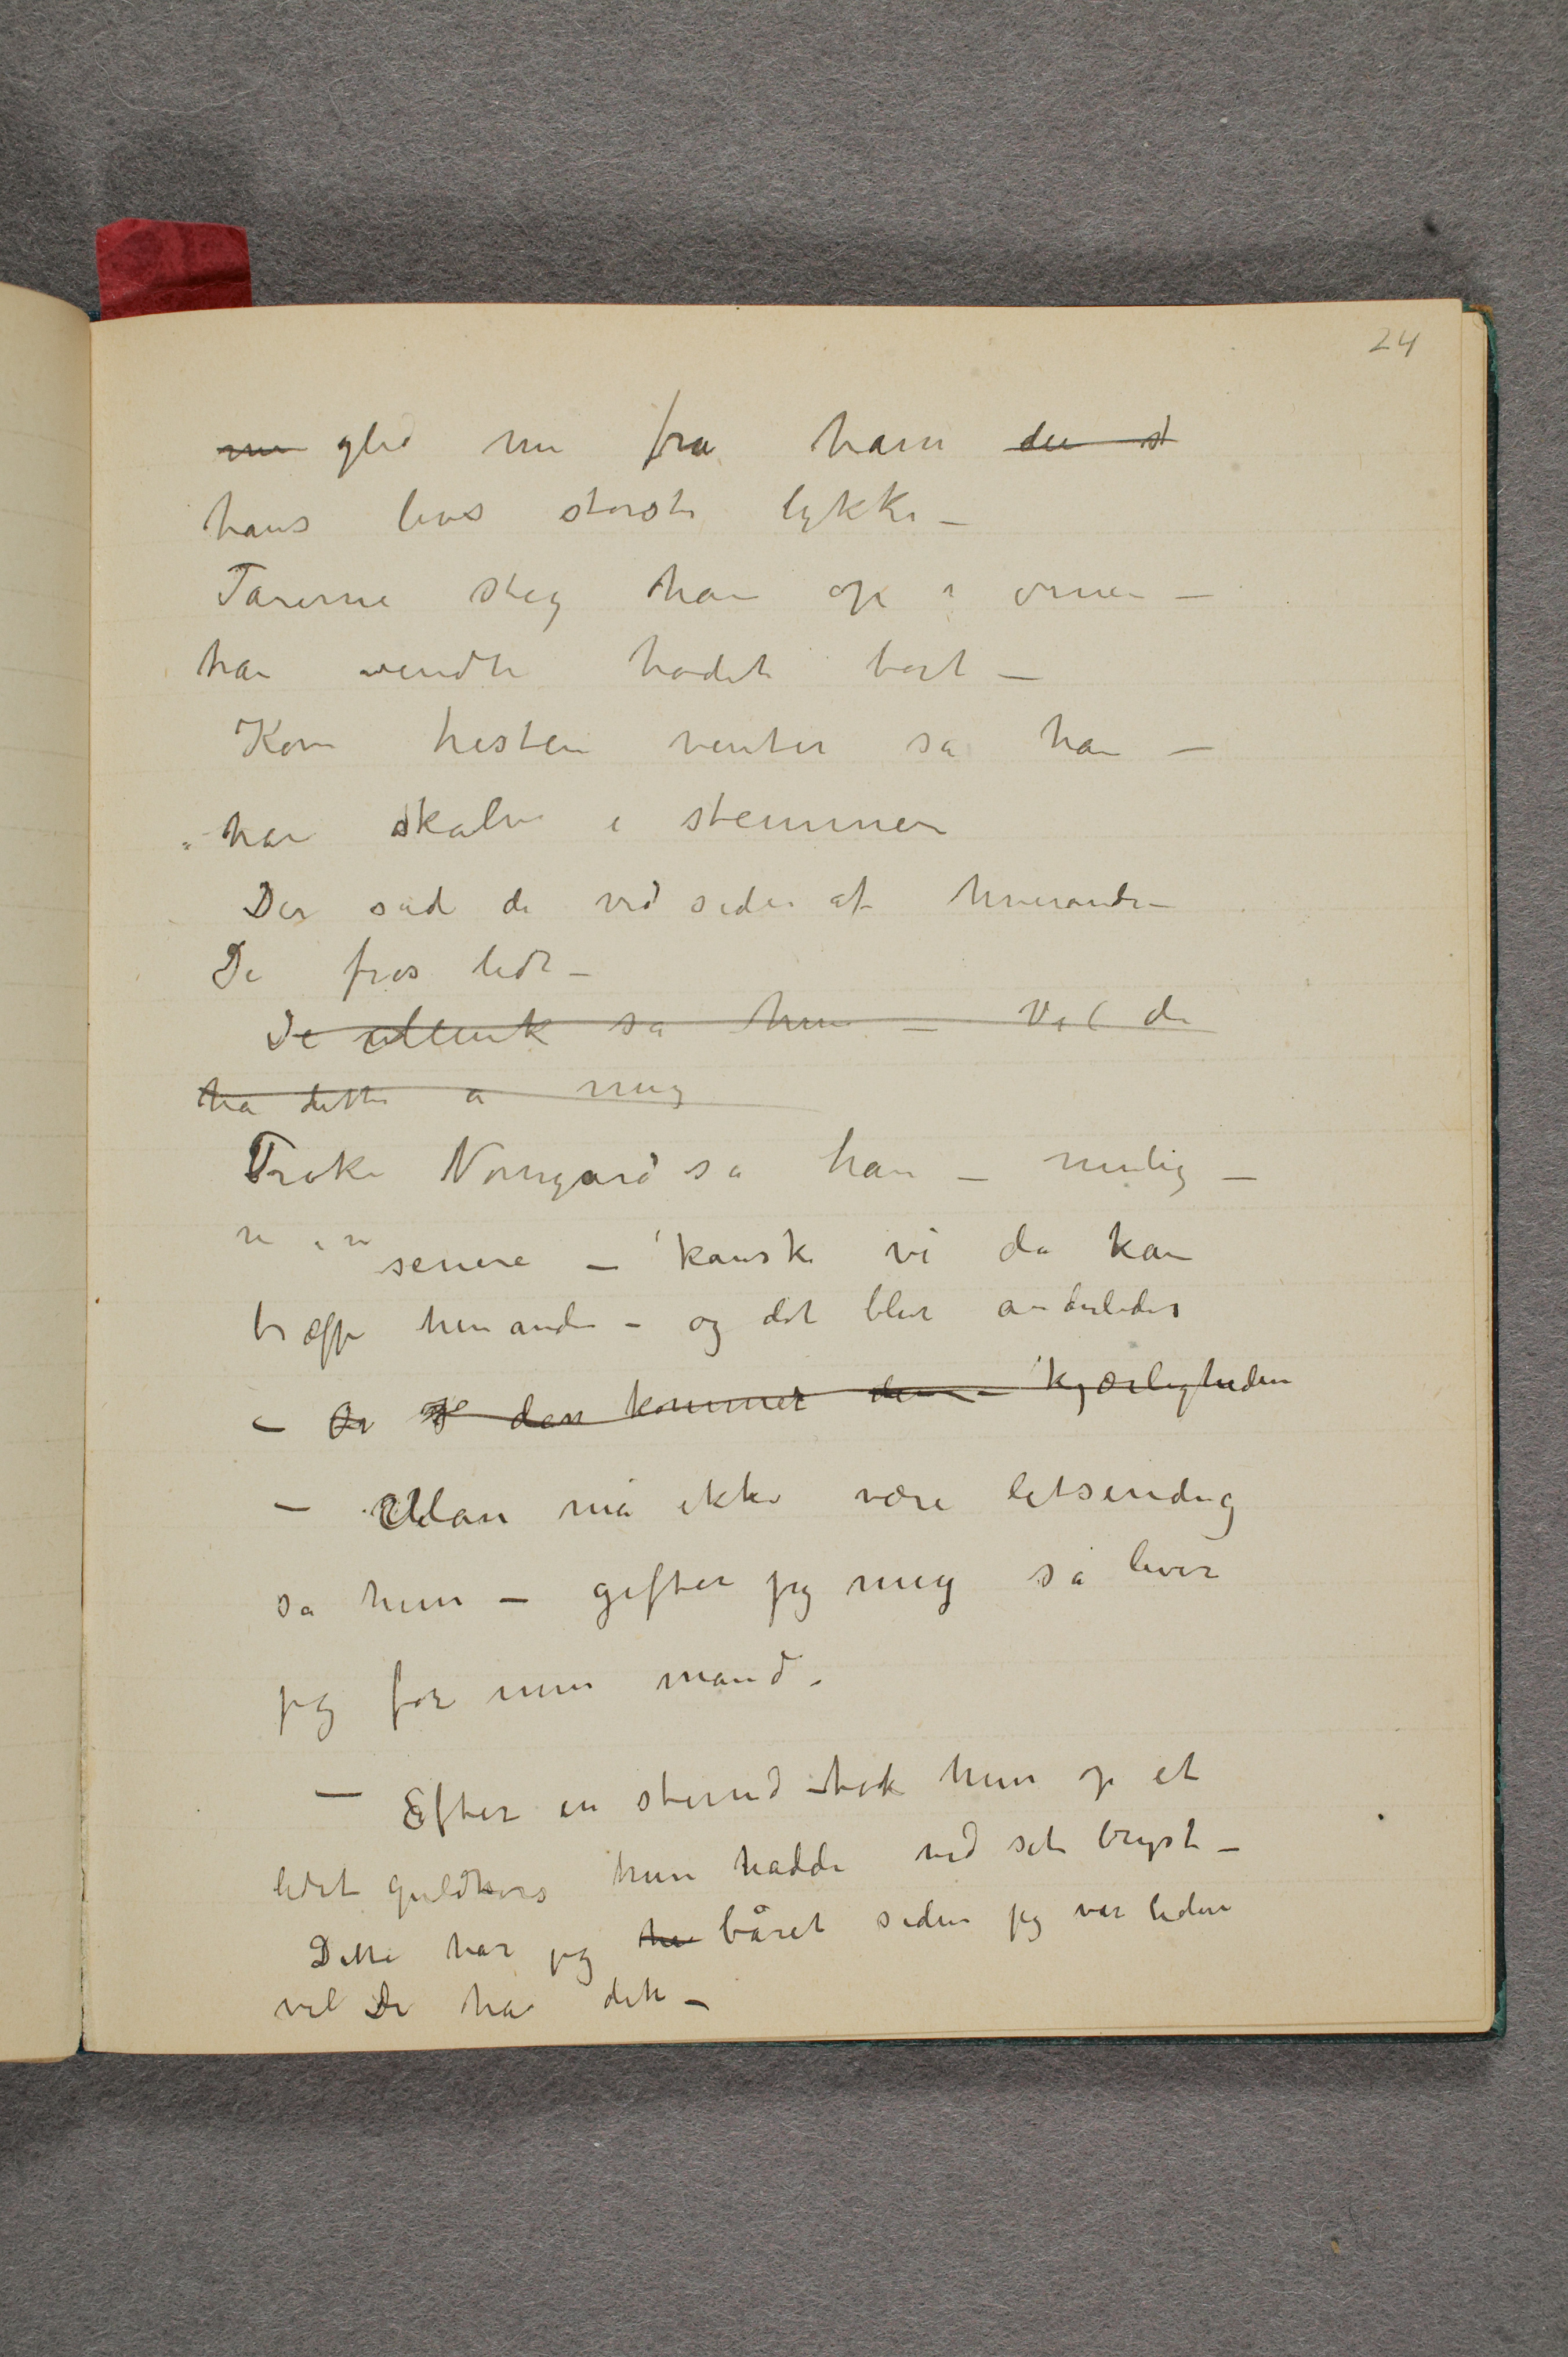 24
nu glid nu fra ham den st
hans livs største lykke –
Tårerne steg ham op i
han vendte hodet bort –
Kom hesten venter sa han –
han skalv i stemmen
Der sad de ved siden af hverandre
De frøs lidt –
De sa hun – Vil de
ha dette a mig
Frøken Norngård sa han – mulig –
senere – kanske vi da kan
træffe hinanden – og det blir anderledes
– den kommer den – kjærligheden
– Man må ikke være letsindig
sa hun – gifter jeg mig så lever
jeg for min mand.
– Efter en stund tok hun op et
lidet guldkors hun hadde ved sit bryst –
Dette har jeg ha båret siden jeg var liden
vil De ha det –